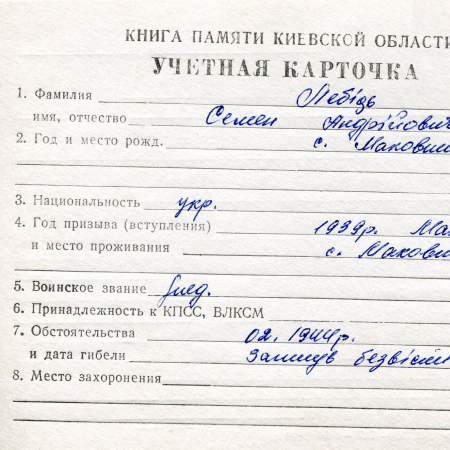 КНИГА ПАМЯТИ КИЕВСКОЙ ОБЛАСТИ
УЧЕТНАЯ КАРТОЧКА
1. Фамилия Лебідь
имя, отчество Семен Андрійович
2. Год и место рожд. с.
3. Национальность укр.
4. Год призыва (вступления) 1939р.
и место проживания с.
5. Воинское звание
6. Принадлежность к КПСС, ВЛКСМ
7. Обстоятельства 02.1944р.
и дата гибели Загинув
8. Место захоронения